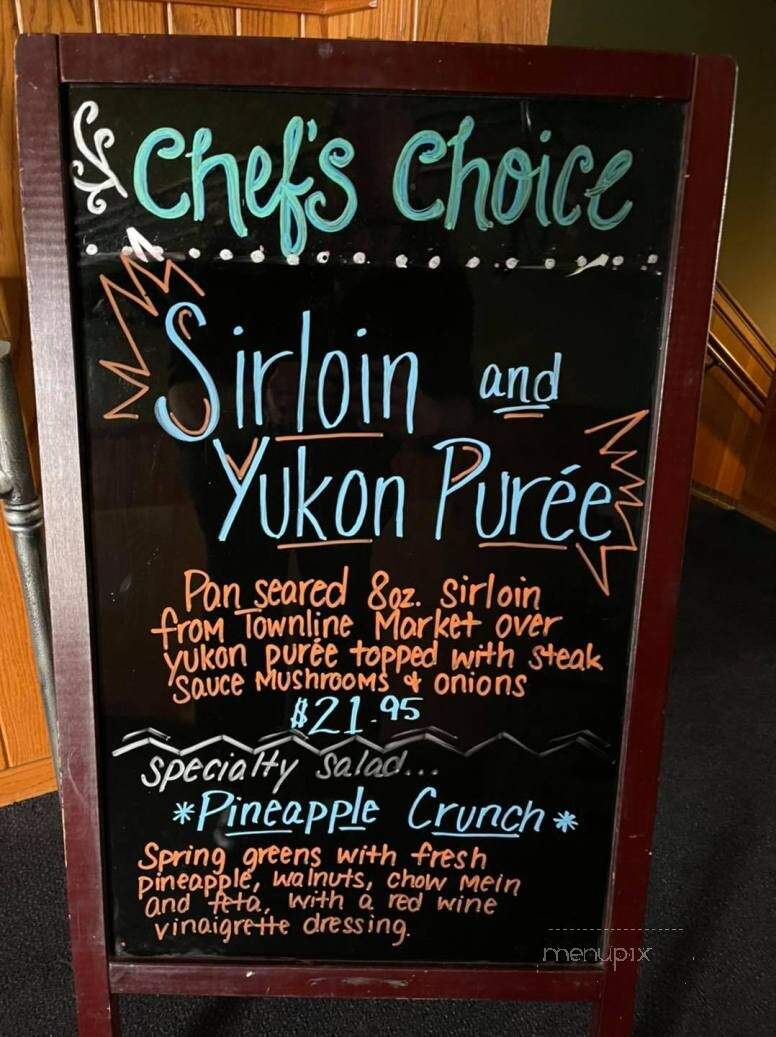 Chef's Choice
Sirloin and
Yukon Purée
Pan seared 8oz. sirloin
from Townline Market over
yukon purée topped with steak
sauce mushrooms & onions
$21.95
specialty salad...
*Pineapple Crunch*
Spring greens with fresh
pineapple, walnuts, chow mein
and feta, with a red wine
vinaigrette dressing.
menupix